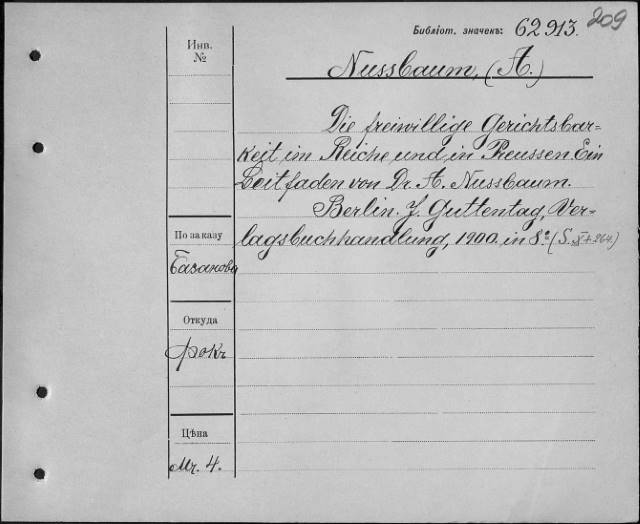 Библіот. значекъ: 62913. 209
Инв.
№
Nussbaum, (A.)
Die freiwillige Gerichtsbar=
keit im Reiche und in Preussen. Ein
Leitfaden von Dr. A. Nussbaum.
Berlin. J. Guttentag, Ver-
lagsbuchhandlung, 1900. in 8º (S. XI + 264.)
По заказу
Базанова
Откуда
Рокъ
Цѣна
Mr. 4.